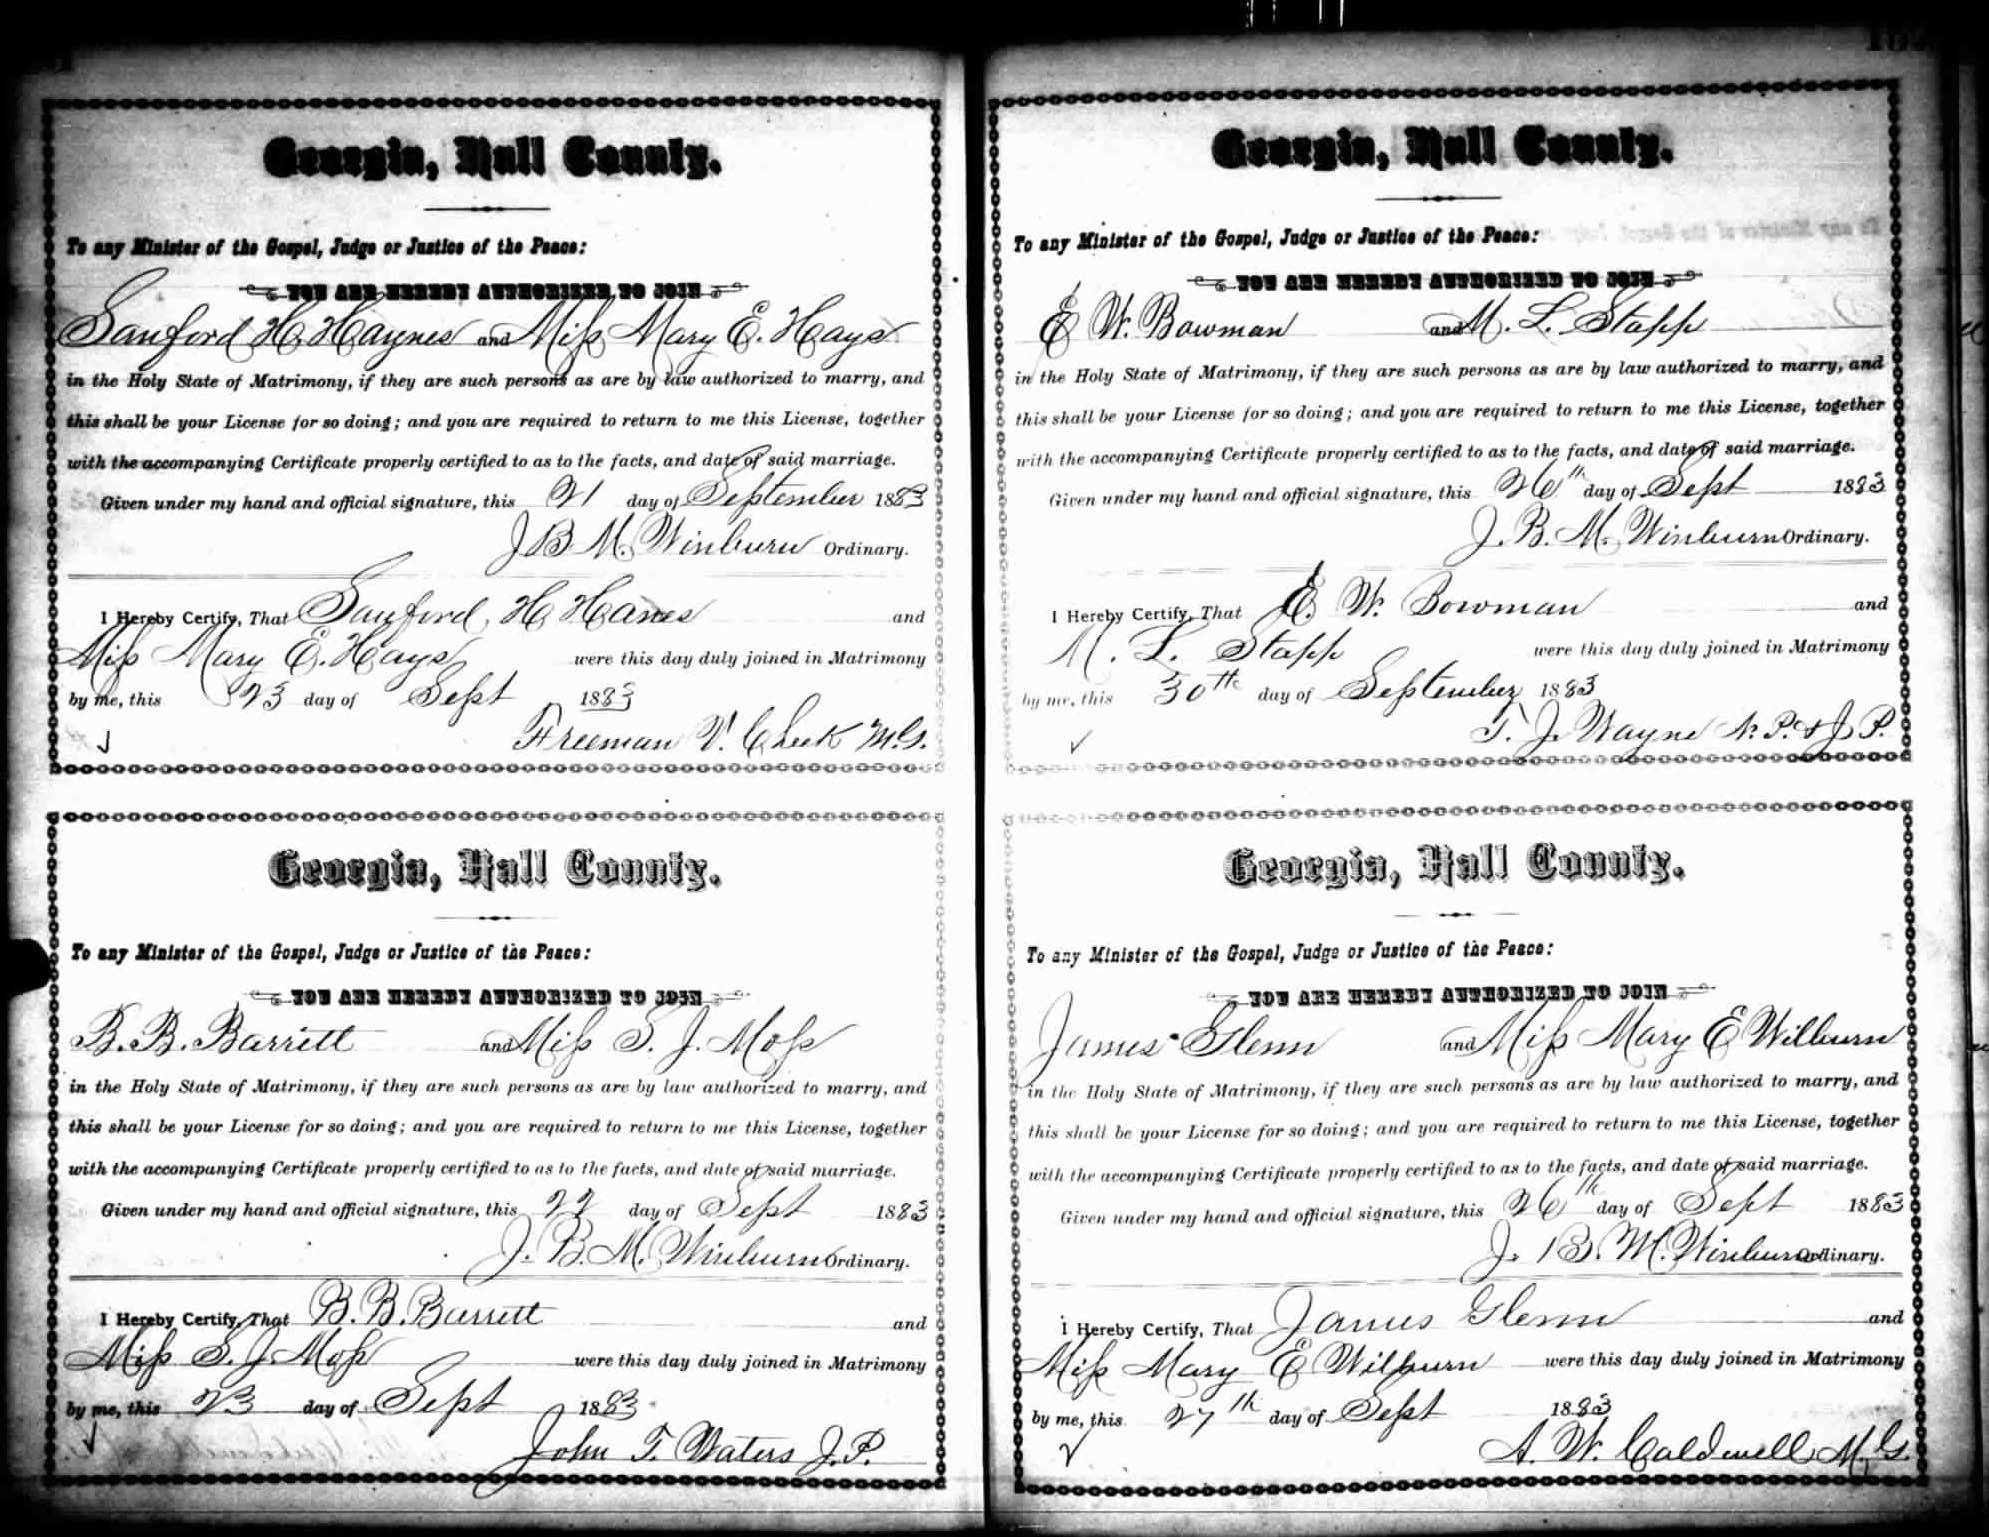 Georgia, Hall County.
To any Minister of the Gospel, Judge or Justice of the Peace:
YOU ARE HEREBY AUTHORIZED TO JOIN
Sanford H. Haynes and Miss Mary E. Hays
in the Holy State of Matrimony, if they are such persons as are by law authorized to marry, and
this shall be your License for so doing; and you are required to return to me this License, together
with the accompanying Certificate properly certified to as to the facts, and date of said marriage.
Given under my hand and official signature, this 21 day of September 1883
J. B. M. Winburn Ordinary.
I Hereby Certify, That Sanford H Hanes and
Miss Mary E. Hays were this day duly joined in Matrimony
by me, this 23 day of Sept 1883
Freeman V. Cheek M.G.
Georgia, Hall County.
To any Minister of the Gospel, Judge or Justice of the Peace:
YOU ARE HEREBY AUTHORIZED TO JOIN
B. B. Barrett and Miss S. J. Moss
in the Holy State of Matrimony, if they are such persons as are by law authorized to marry, and
this shall be your License for so doing; and you are required to return to me this License, together
with the accompanying Certificate properly certified to as to the facts, and date of said marriage.
Given under my hand and official signature, this 22 day of Sept 1883
J. B. M. Winburn Ordinary.
I Hereby Certify, That B. B. Barrett and
Miss S. J. Moss were this day duly joined in Matrimony
by me, this 23 day of Sept 1883
John T. Waters J.P.
Georgia, Hall County.
To any Minister of the Gospel, Judge or Justice of the Peace:
YOU ARE HEREBY AUTHORIZED TO JOIN
E W. Bowman and M. L. Stapp
in the Holy State of Matrimony, if they are such persons as are by law authorized to marry, and
this shall be your License for so doing; and you are required to return to me this License, together
with the accompanying Certificate properly certified to as to the facts, and date of said marriage.
Given under my hand and official signature, this 26th day of Sept 1883
J. B. M. Winburn Ordinary.
I Hereby Certify, That E. W. Bowman and
M. L. Stapp were this day duly joined in Matrimony
by me, this 30th day of September 1883
T. J. Wayne N. P. & J. P.
Georgia, Hall County.
To any Minister of the Gospel, Judge or Justice of the Peace:
YOU ARE HEREBY AUTHORIZED TO JOIN
James Glenn and Miss Mary E Wilburn
in the Holy State of Matrimony, if they are such persons as are by law authorized to marry, and
this shall be your License for so doing; and you are required to return to me this License, together
with the accompanying Certificate properly certified to as to the facts, and date of said marriage.
Given under my hand and official signature, this 26th day of Sept 1883
J. B. M. Winburn Ordinary.
I Hereby Certify, That James Glenn and
Miss Mary E Wilburn were this day duly joined in Matrimony
by me, this 27th day of Sept 1883
A. W. Caldwell M.G.